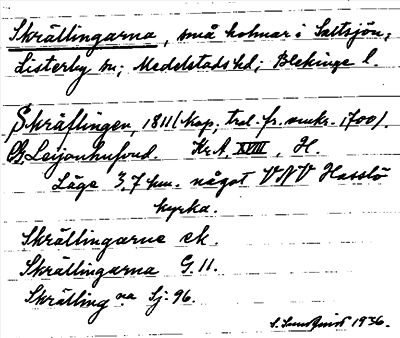 Skrällingarna, små holmar i Saltsjön;
Listerby sn; Medelstads hd; Blekinge l.
Skräflingen, 1811 (kop, trol. fr. omkr. 1700).
G Leijonhufvud. Kr.A. XVIII, H.
Läge 3,7 km. något VNV Hasslö
kyrka.
Skrällingarne ek.
Skrällingarna G. 11.
Skrälling na Sj. 96.
S. Sundquist 1936.